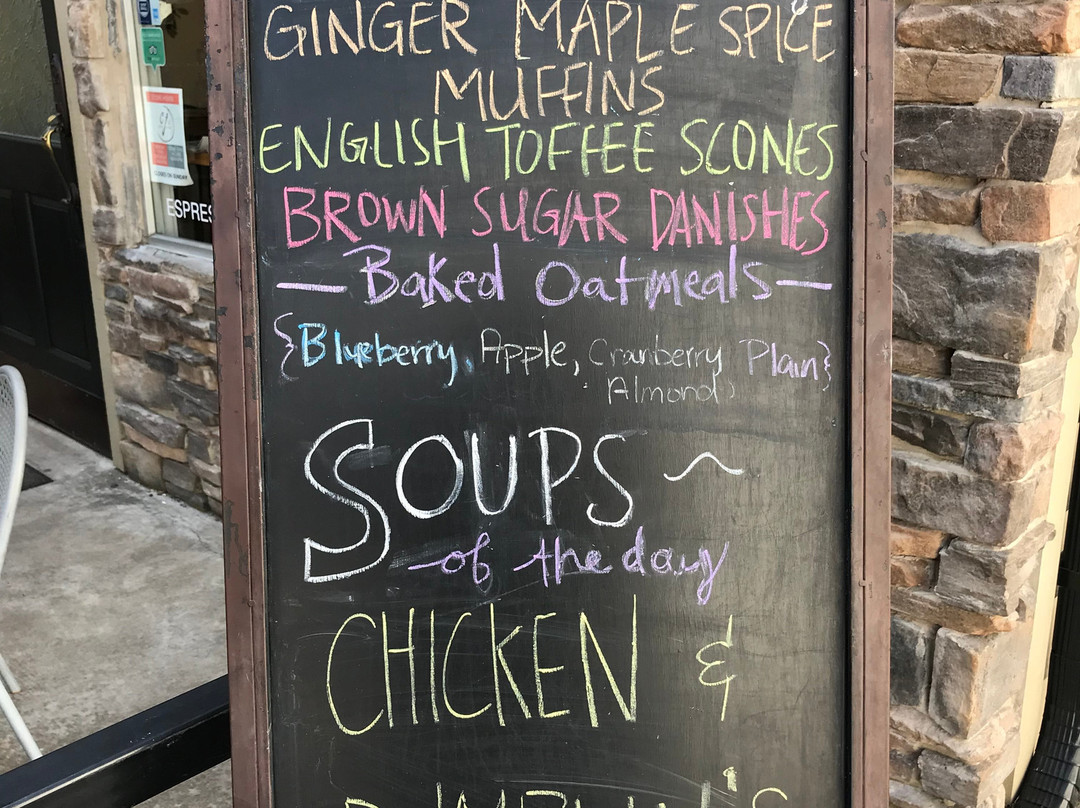 GINGER MAPLE SPICE
MUFFINS
ENGLISH TOFFEE SCONES
BROWN SUGAR DANISHES
— Baked Oatmeals —
{Blueberry, Apple, Cranberry Plain}
Almond
SOUPS ~
of the day
CHICKEN &
ESPRES
CLOSED ON SUNDAY